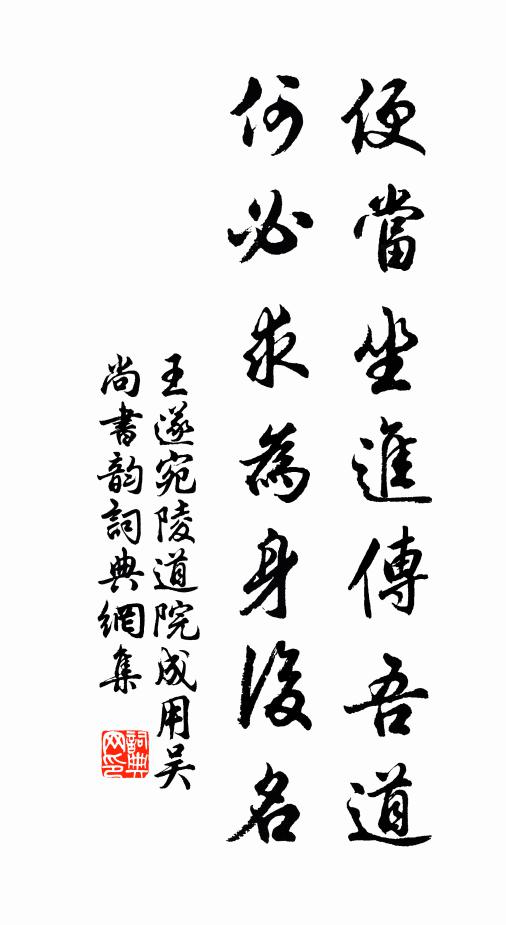 便當坐進傳吾道
何必求為身後名
王遂宛陵道院成用吴
尚書韵詞典網集
詞典網印